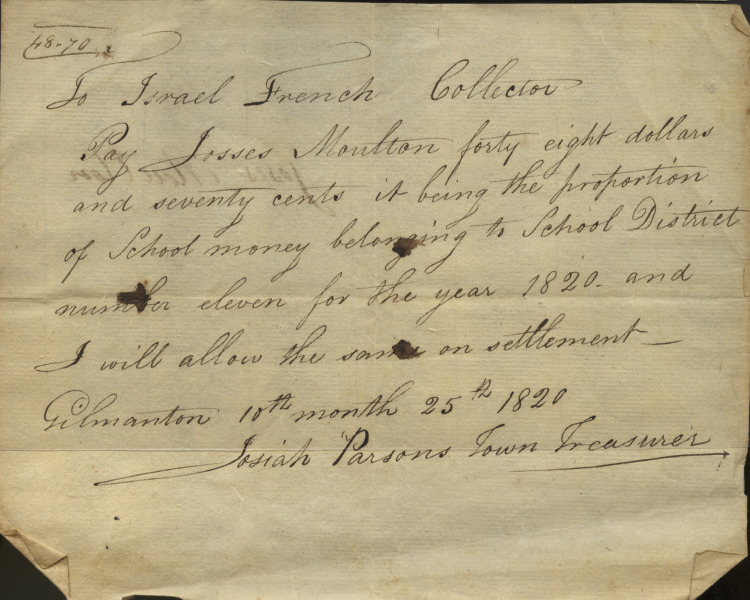 48-70
To Israel French Collector
Pay Josses Moulton forty eight dollars
and seventy cents it being the proportion
of School money belonging to School District
number eleven for the year 1820. and
I will allow the same on settlement—
Gilmanton 10th month 25th 1820
Josiah Parsons Town Treasurer